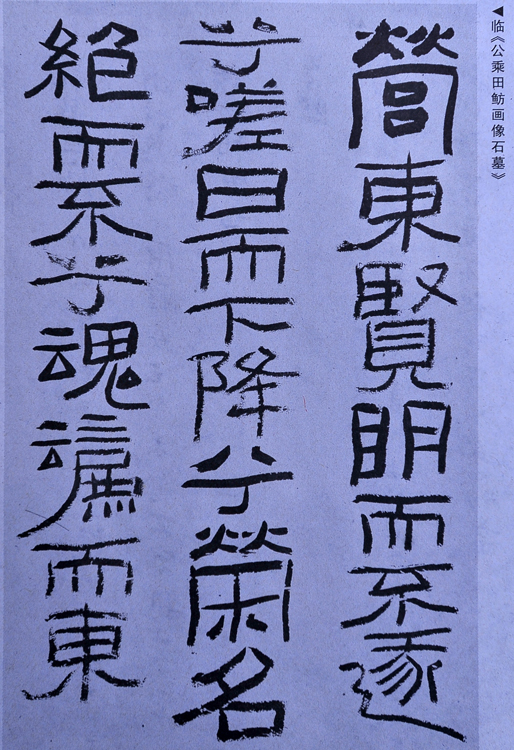 ◀临《公乘田鲂画像石墓》
營東賢明而不遂
兮嗟日而下降兮榮名
絕而不兮魂而東